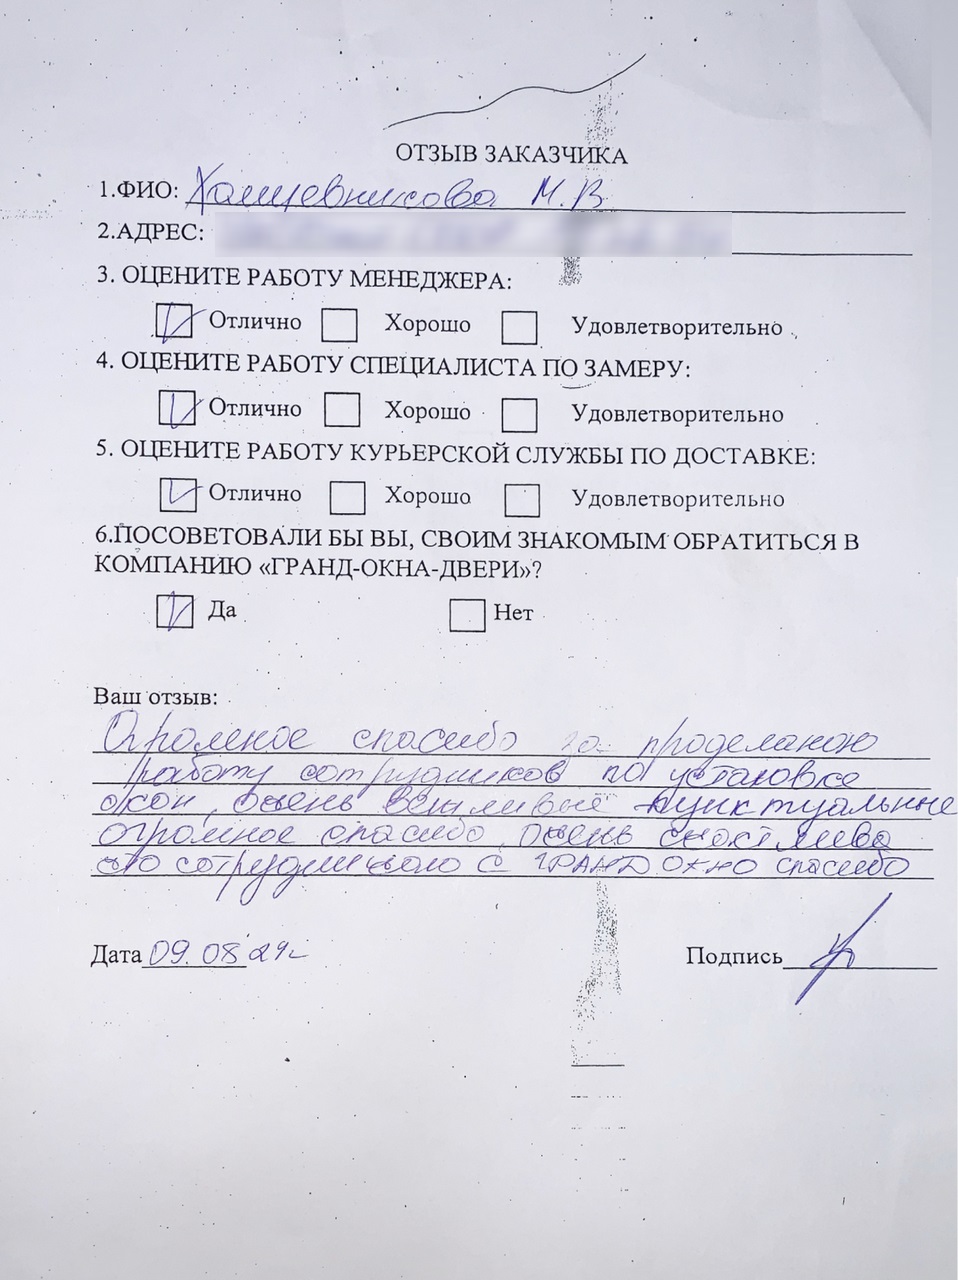 ОТЗЫВ ЗАКАЗЧИКА
1.ФИО: М.В
2.АДРЕС:
3. ОЦЕНИТЕ РАБОТУ МЕНЕДЖЕРА:
Отлично Хорошо Удовлетворительно
4. ОЦЕНИТЕ РАБОТУ СПЕЦИАЛИСТА ПО ЗАМЕРУ:
Отлично Хорошо Удовлетворительно
5. ОЦЕНИТЕ РАБОТУ КУРЬЕРСКОЙ СЛУЖБЫ ПО ДОСТАВКЕ:
Отлично Хорошо Удовлетворительно
6.ПОСОВЕТОВАЛИ БЫ ВЫ, СВОИМ ЗНАКОМЫМ ОБРАТИТЬСЯ В
КОМПАНИЮ «ГРАНД-ОКНА-ДВЕРИ»?
Да Нет
Ваш отзыв:
Огромное спасибо за проделаною
работу сотрудников по установке
окон, очень вежливые пунктуальные
огромное спасибо очень
что с ГРАНД ОКНО спасибо
Дата 09.08 24г
Подпись